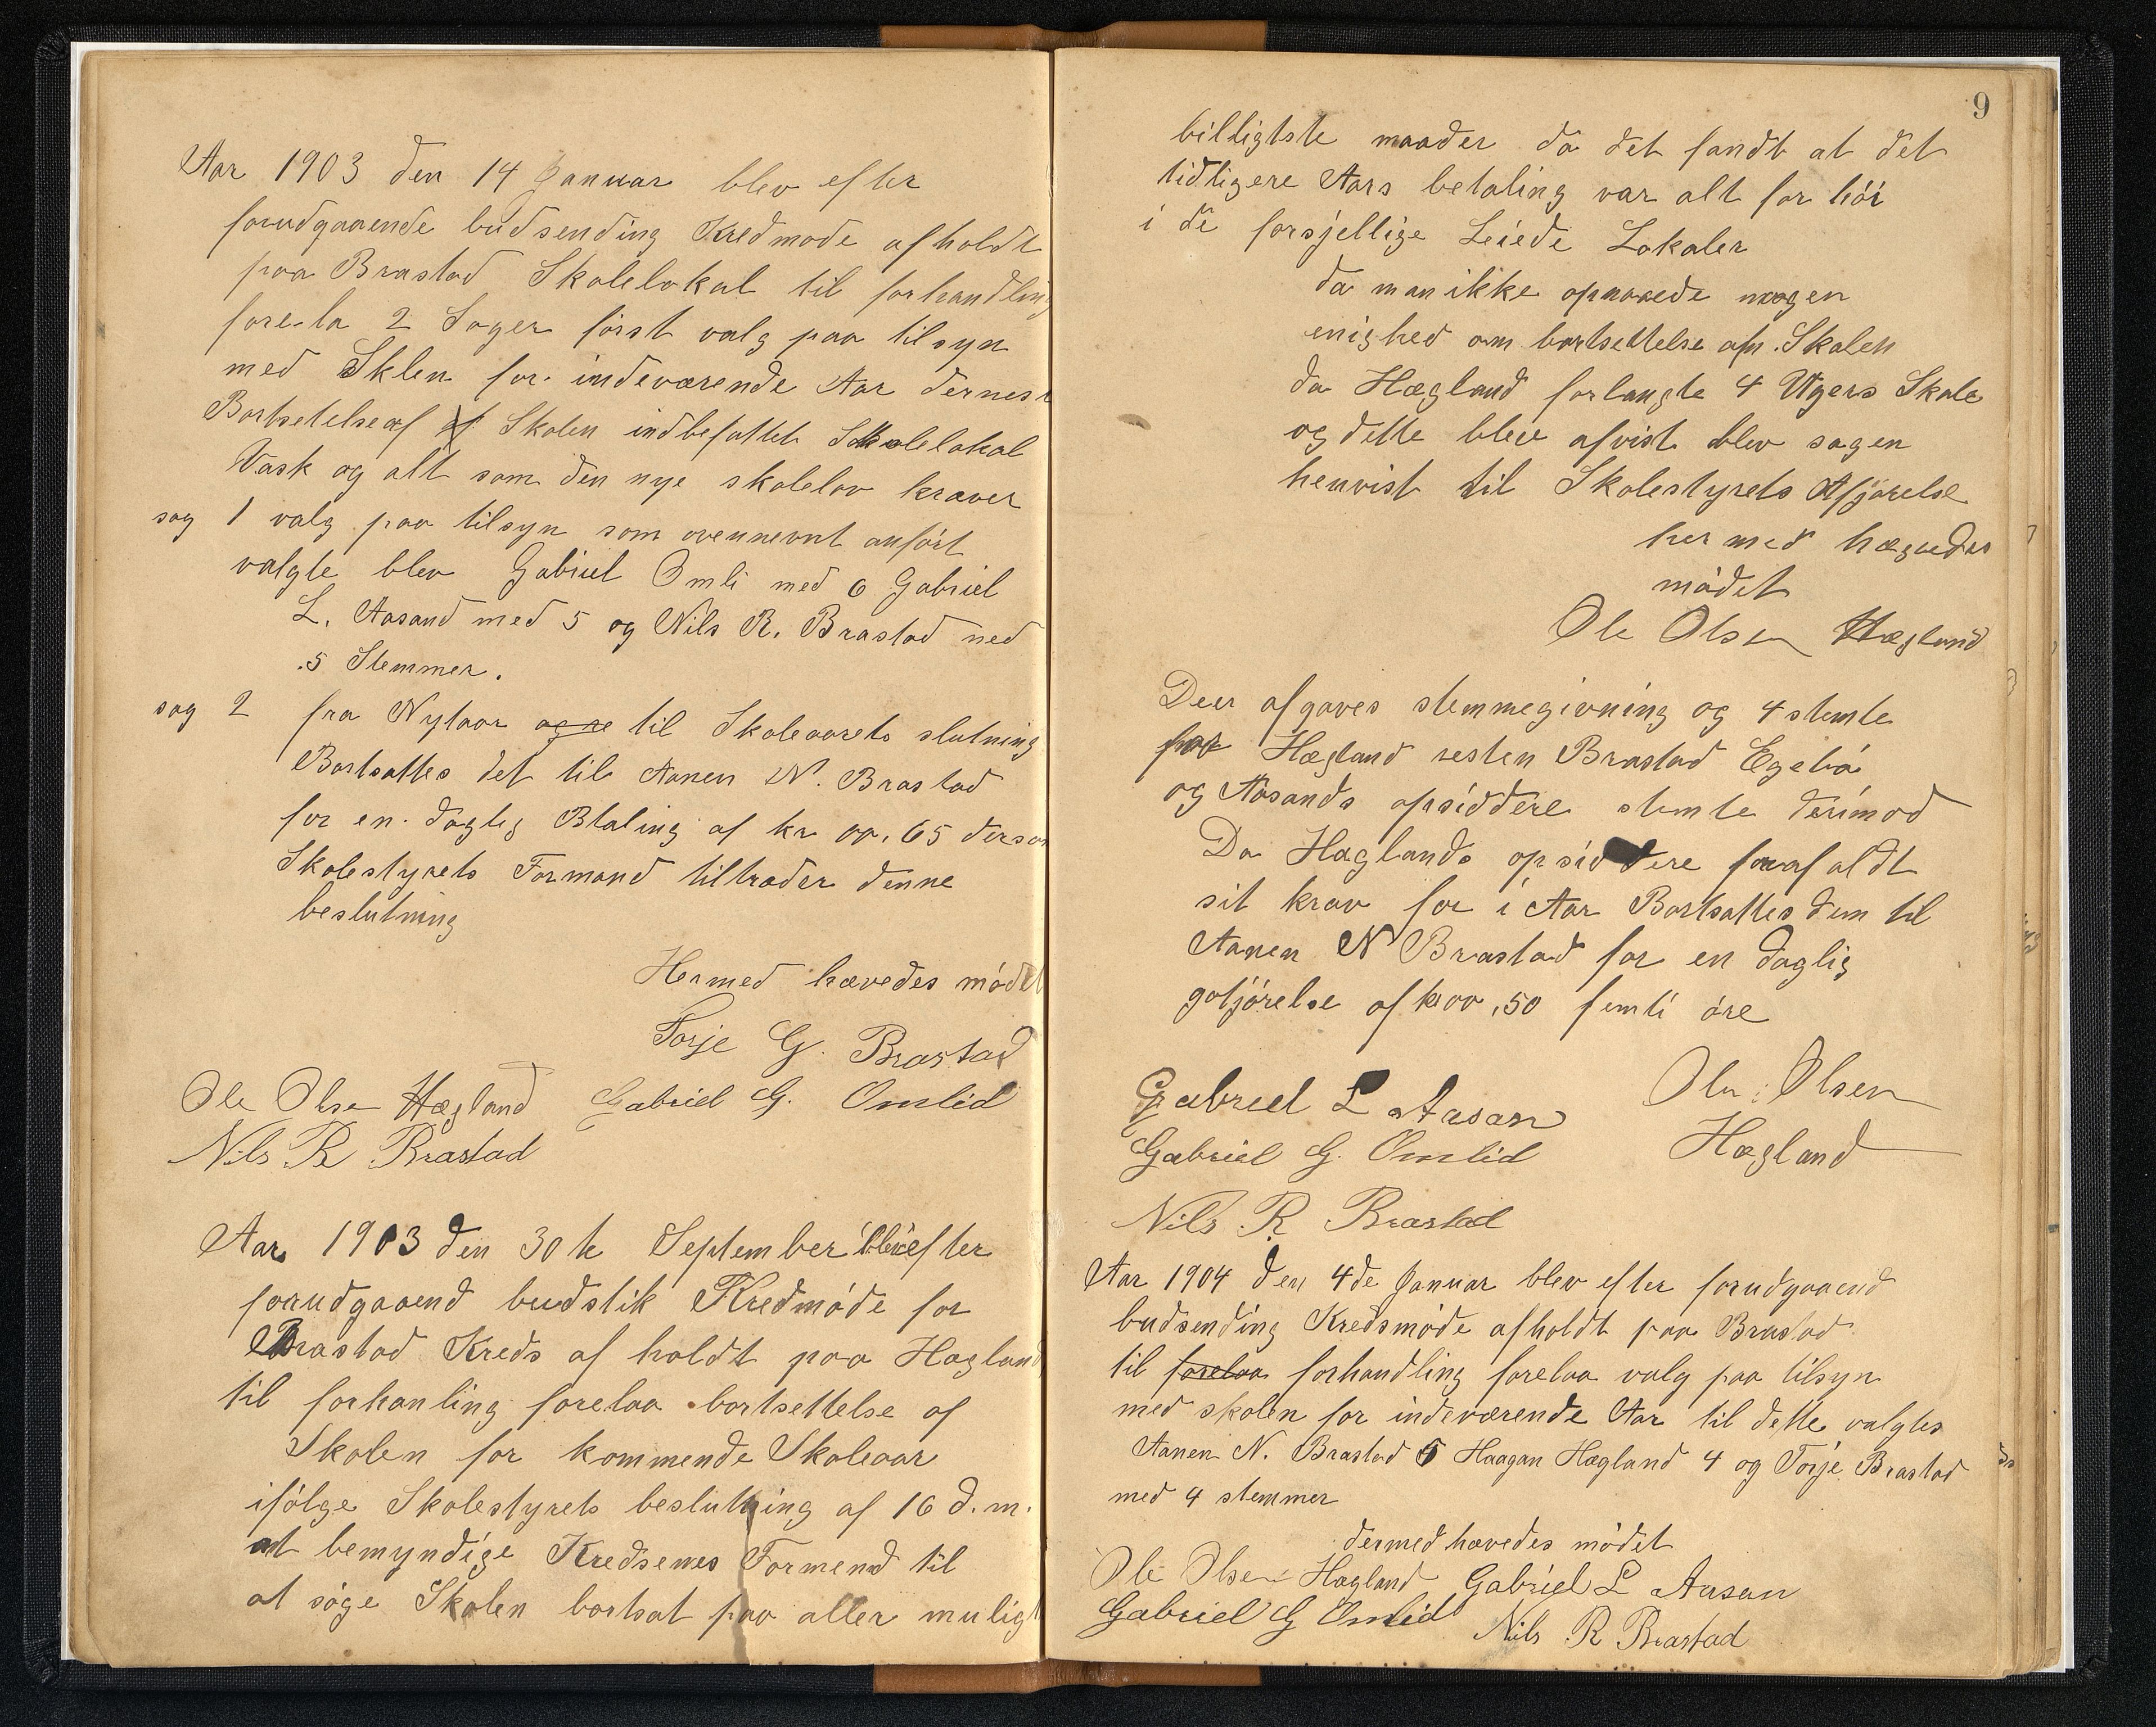 Aar 1903 den 14 Januar blev efter
forudgaaende budsending Kredmøde afholdt
paa Brastad Skolelokal til forhandling
forela 2 Sager først valg paa tilsyn
med Sklen for indeværende Aar dernest
Bortsetelse af af Skolen indbefattet Skolelokal
Vask og alt som den nye skolelov kræver
sag 1 valg paa tilsyn som ovennevnt anført
valgte blev Gabriel Omli med 6 Gabriel
L. Aasand med 5 og Nils R. Brastad med
5 Stemmer.
sag 2 fra Nytaar til Skoleaarets slutning
Bortsattes det til Aanen N. Brastad
for en daglig Btaling af kr oo. 65 dersom
Skolestyrets Formand tiltræder denne
beslutning
Hermed hævedes mødet
Torje G. Brastad
Ole Olsen Hægland Gabriel G. Omlid
Nils R Brastad
Aar 1903 den 30te September blev efter
forudgaaend budstik Kredmøde for
Brastad Kreds af holdt paa Hægland
til forhanling forelaa bortsettelse af
Skolen for kommende Skoleaar
ifølge Skolestyrets beslutning af 16 d.m.
at bemyndige Kredsenes Formend til
at søge Skolen bortsat paa aller muligt
9
billigtste maader da det fandt at det
tidligere Aars betaling var alt for høi
i de forsjellige Leiede Lokaler
da man ikke opnaaede nogen
enighed om bortsettelse af Skolen
da Hægland forlangte 4 Ugers Skole
og dette blev afvist blev sagen
henvist til Skolestyrets Afjørelse
hermed hævedes
mødet
Ole Olsen Hægland
Der afgaves stemmegivning og 4 stemte
for Hægland resten Brastad Egebø
og Aasands opsiddere stemte derimod
Da Hæglands opsiddere frafaldt
sit krav for i Aar Bortsattes dem til
Aanen N Brastad for en daglig
gotjørelse af kr oo,50 femti øre
Gabriel L Aasan Ole Olsen
Gabriel G. Omlid Hægland
Nils R Brastad
Aar 1904 den 4de Januar blev efter forudgaaend
budsending Kredsmøde afholdt paa Brastad
til forelaa forhandling forelaa valg paa tilsyn
med skolen for indeværende Aar til dette valgtes
Aanen N. Brastad 5 Haagan Hægland 4 og Torje Brastad
med 4 stemmer
dermed hævedes mødet
Ole Olsen Hægland Gabriel L Aasan
Gabriel G Omlid Nils R Brastad